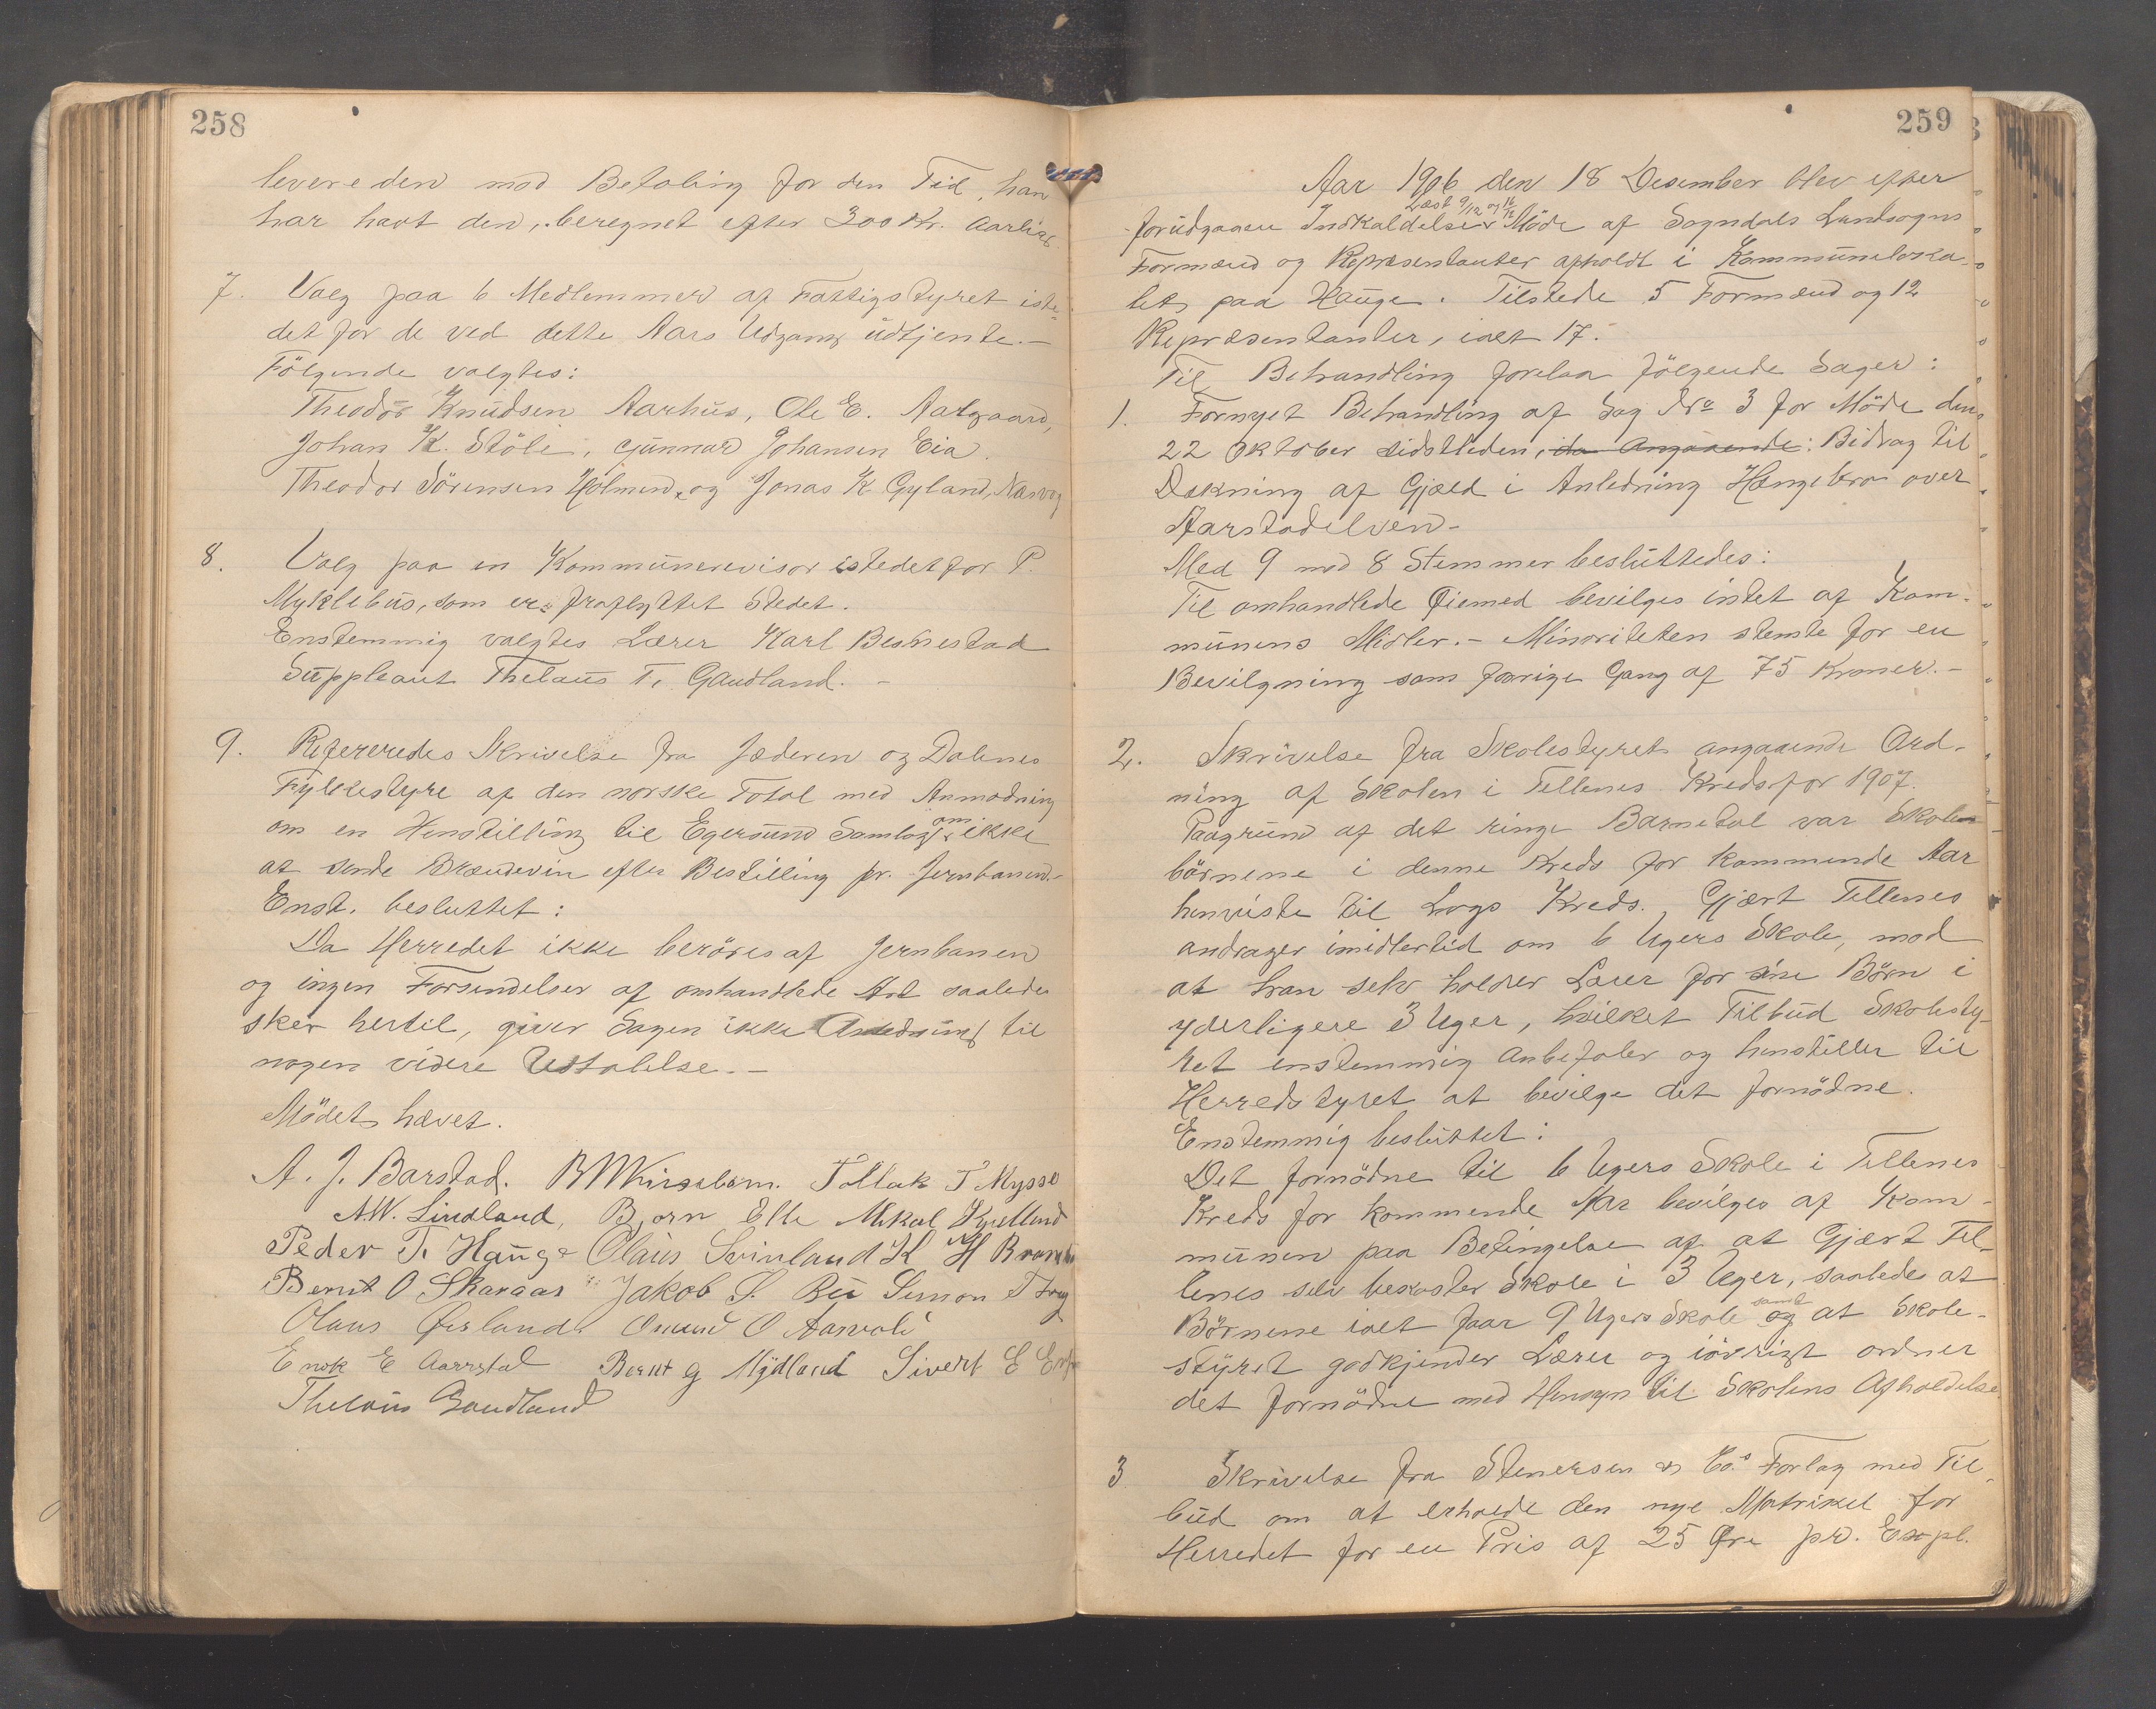 258
levere den mod Betaling for den Tid, han
har havt den, beregnet efter 300 Kr. aarlig.
7. Valg paa 6 Medlemmer af Fattigstyret iste-
det for de ved dette Aars Udgang udtjente.-
Fölgende valgtes:
Theodor Knudsen Aarhus, Ole E. Aatgaard,
Johan K. Stöle, Gunnar Johansen Eia.
Theodor Sörensen Holmen, og Jonas K. Gyland,
8. Valg paa en Kommunerevisor istedetfor P.
Myklebus, som er fraflyttet Stedet.
Enstemmig valgtes Lærer Karl
Suppleant Thelaus T. Gaudland. -
9. Refereredes Skrivelse fra Jæderen og Dalenes
Fylkestyre af den norske Total med Anmodning
om en Henstilling til Egersund Samlag om ikke
at sende Brændevin efter Bestilling pr. Jernbanen.-
Enst. besluttet:
Da Herredet ikke beröres af Jernbanen
og ingen Forsendelser af omhandlede Art saaledes
sker hertil, giver Sagen ikke Anledning til
nogen videre Udtalelse.-
Mödet hævet.
A. J. Barstad. Tollak T Mysse
A.W. Lindland, Bjorn Elle Mikal
Peder T. Hauge Olaus Svinland K H
Bernt O Skaraas Jakob S. Bu Simon T
Olaus Omund O Aarvoli
Enok E Aarrstad Bernt G Mydland Sivert E
Thelaus Gaudland
259
Aar 1906 den 18 Desember blev efter
forudgaaen Indkaldelse Læst 9/12 og 16/12 Möde af Sogndals Landsogns
Formænd og Repræsentanter afholdt i Kommuneloka-
let paa Hauge. Tilstede 5 Formænd og 12
Repræsentanter, ialt 17.
Til Behandling forelaa fölgende Sager:
1. Fornyet Behandling af Sag No 3 for Möde den
22 Oktober sidstleden, da Angaaende: Bidrag til
Dækning af Gjæld i Anledning Hængebro over
Aarstadelven-
Med 9 mod 8 Stemmer besluttedes:
Til omhandlede Øiemed bevilges intet af Kom-
munens Midler.- Minoriteten stemte for en
Bevilgning som forrige Gang af 75 Kroner.-
2. Skrivelse fra Skolestyret angaaende Ord-
ning af Skolen i Tellenes Kreds for 1907.
Paagrund af det ringe Barnetal var Skole
börnene i denne Kreds for kommende Aar
henviste til Logs Kreds. Gjært Tellenes
andrager imidlertid om 6 Ugers Skole, mod
at han selv holder Lærer for sine Börn i
yderligere 3 Uger, hvilket Tilbud Skolesty-
ret enstemmig anbefaler og henstiller til
Herredstyret at bevilge det fornödne.
Enstemmig besluttet:
Det fornödne til 6 Ugers Skole i Tellenes
Kreds for kommende Aar bevilges af Kom-
munen paa Betingelse af at Gjært Tel-
lenes selv bekoster Skole i 3 Uger, saaledes at
Börnene ialt faar 9 Ugers Skole og samt at Skole-
styret godkjender Lærer og iövrigt ordner
det fornödne med Hensyn til Skolens Afholdelse
3 Skrivelse fra Stenersen & Co.s Forlag med Til-
bud om at erholde den nye Matrikel for
Herredet for en Pris af 25 Øre pr. Expl.